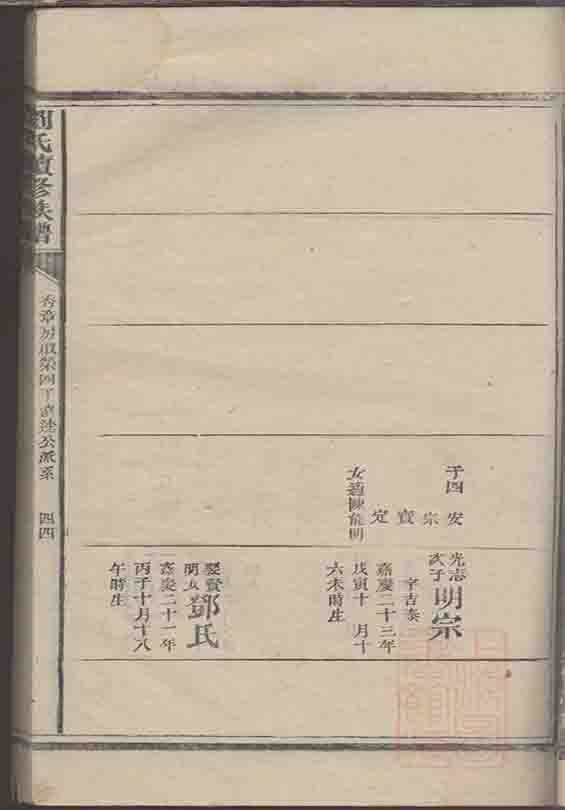 子四
安
宗
寶
定
女適陳
光志
次子
明宗
字吉泰
嘉慶二十三年
戊寅十月十
六未時生
娶賢
明女
鄧氏
嘉慶二十一年
丙子十月十八
午時生
氏續修族譜
秀章房
公派系
四四